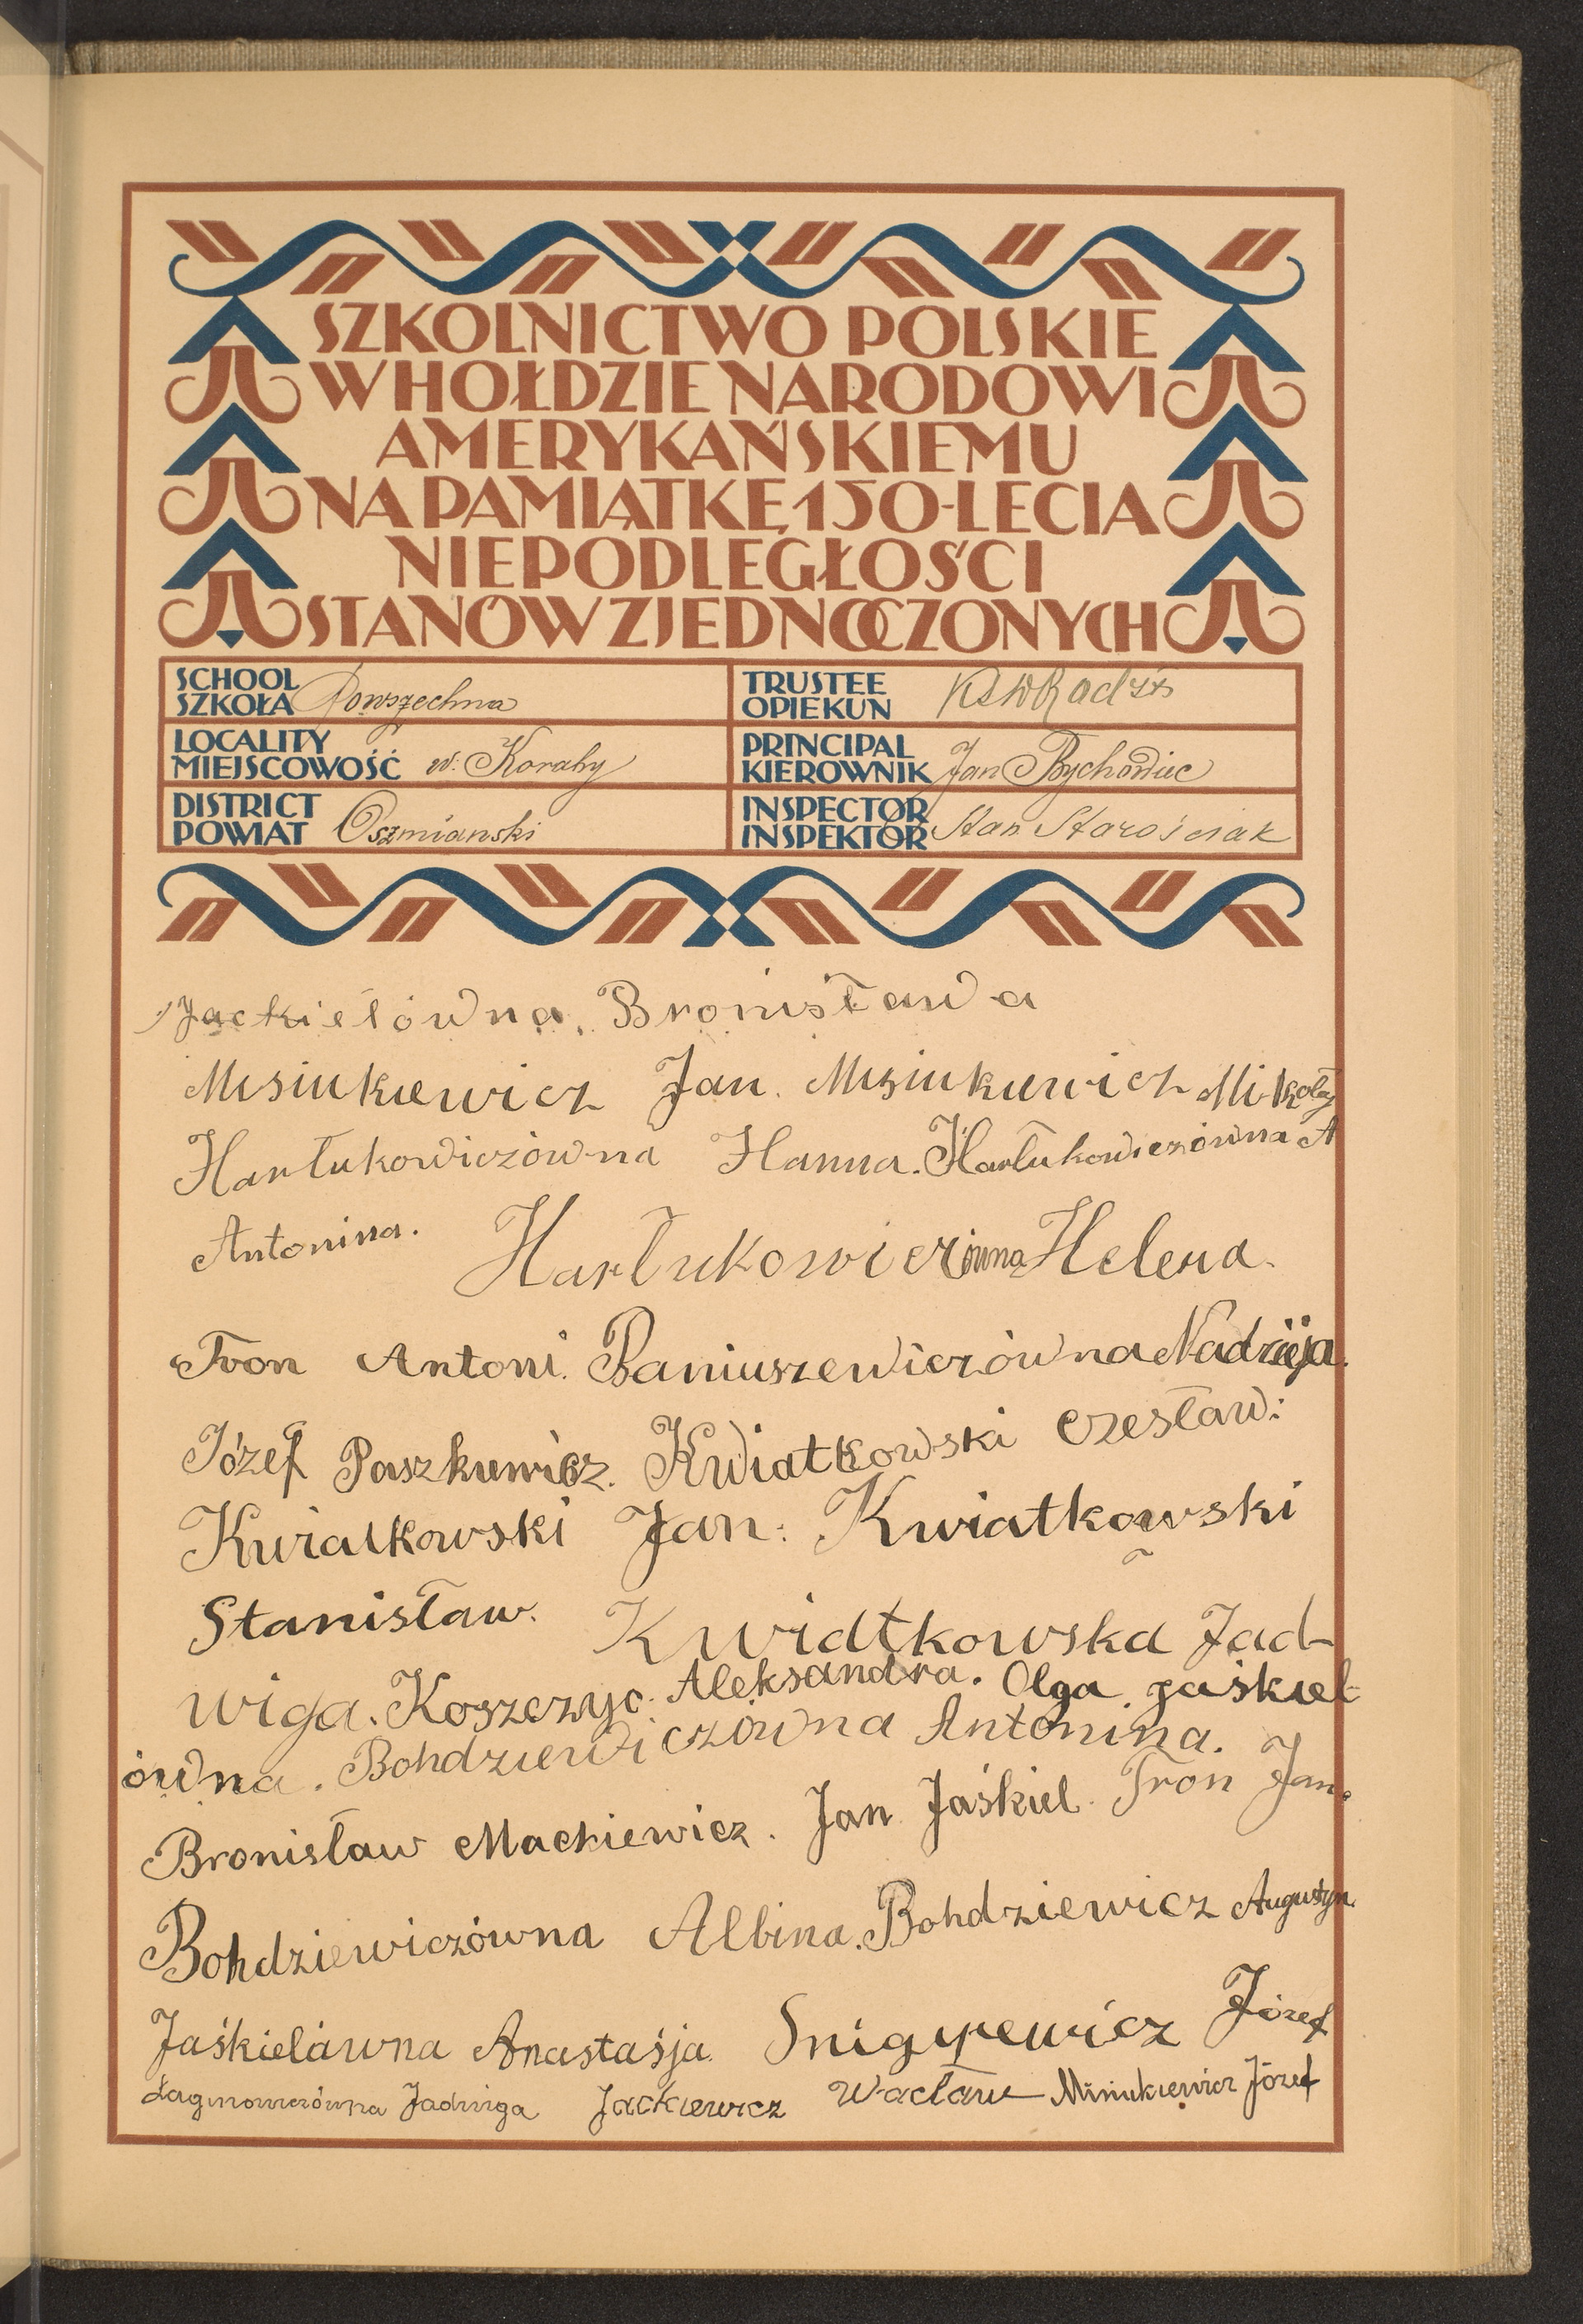 SZKOLNICTWO POLSKIE
W HOŁDZIE NARODOWI
AMERYKAŃSKIEMU
NA PAMIĄTKĘ 150-LECIA
NIEPODLEGŁOŚCI
STANÓW ZJEDNOCZONYCH
SCHOOL
SZKOŁA Powszechna
TRUSTEE
OPIEKUN
LOCALITY
MIEJSCOWOŚĆ w. Koraby
PRINCIPAL
KIEROWNIK Jan Bychowiec
DISTRICT
POWIAT Oszmianski
INSPECTOR
INSPEKTOR Stan Starościak
Jackielówna, Bronisława
Misiukiewicz Jan. Misiukiewicz Mikołaj
Hartukowiczówna Hanna. Hartukowiczówna A
Antonina. Hartukowiczówna Helena.
Tron Antoni. Baniuszewiczówna Nadzieja.
Józef Paszkiewicz. Kwiatkowski Czesław:
Kwiatkowski Jan: Kwiatkowski
Stanisław. Kwiatkowska Jad-
wiga. Koszczyc. Aleksandra. Olga Jaśkiel-
ówna. Bohdziewiczówna Antonina.
Bronisław Mackiewicz. Jan Jaśkiel. Tron Jan.
Bohdziewiczówna Albina. Bohdziewicz Augustyn.
Jaśkielówna Anastaśja. Snigyrewicz Józef
Jadwiga Jackiewicz Wacław Misiukiewicz Józef